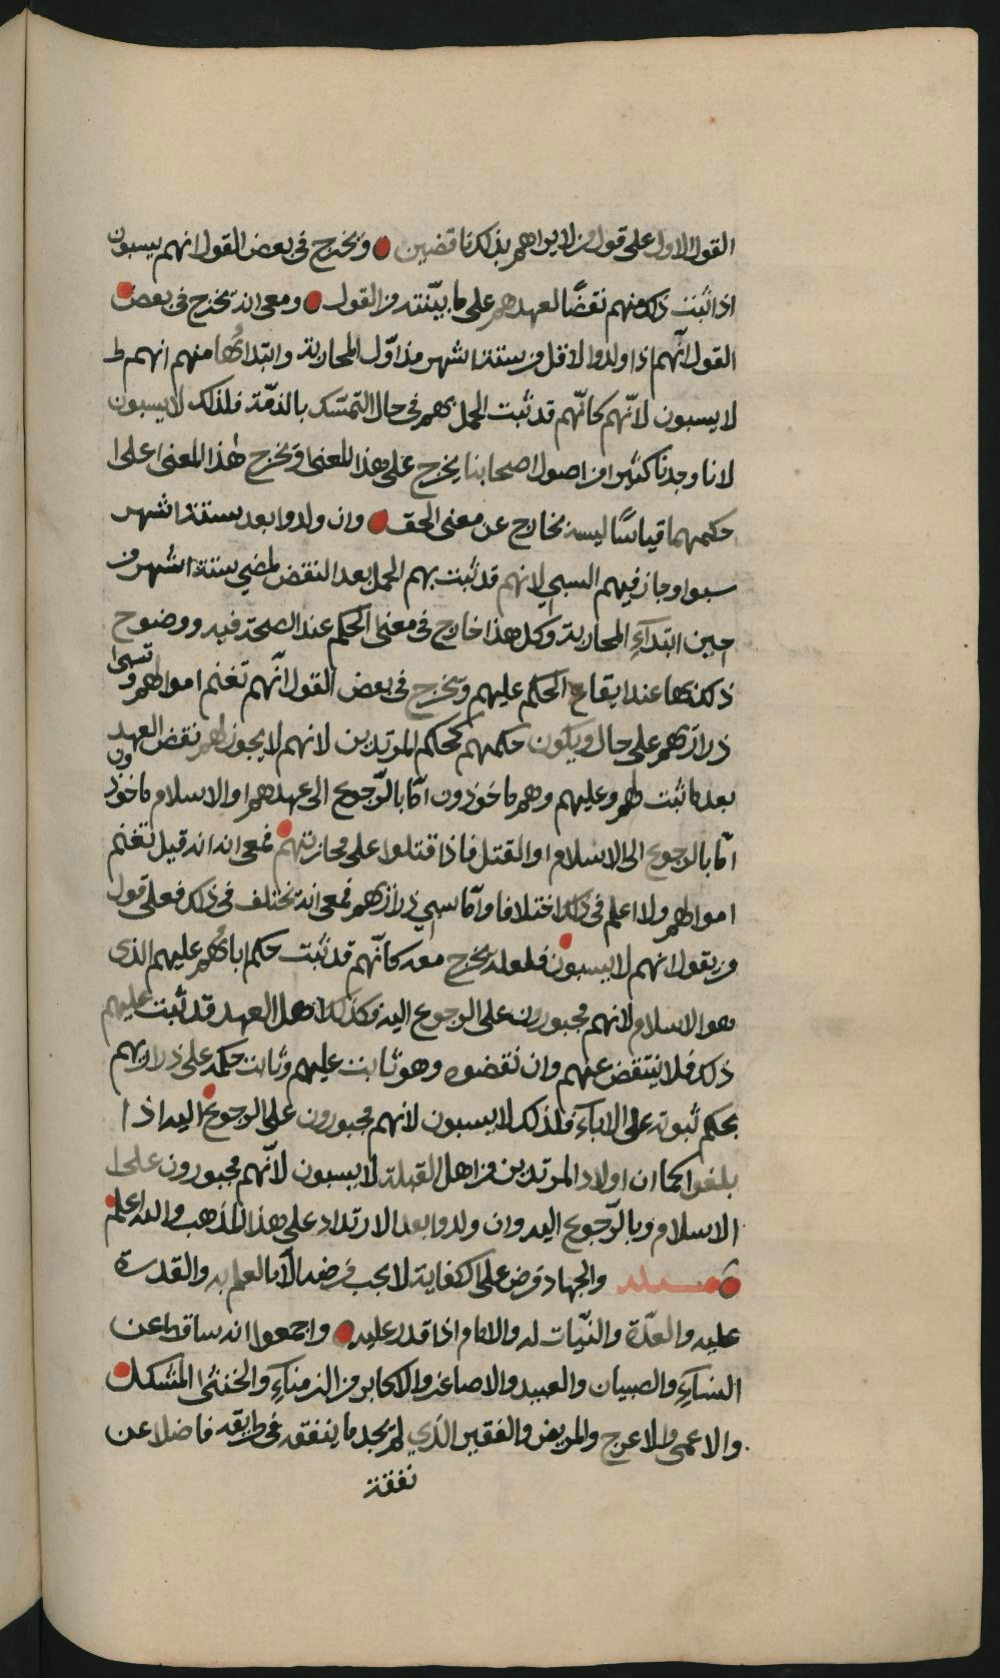 القول الاول على قول من لا يراهم بذلك ناقضين ويخرج في بعض القول انهم يسبون
اذا ثبت ذلك منهم نقضًا لعهدهم على ما بيّنته من القول ومعى انه يخرج في بعض
القول انّهم اذا ولدوا لاقل من ستة اشهر مذ اوّل المحاربة وابتدائها منهم انهم ط
لا يسبون لانّهم كانّهم قد ثبت الحمل بهم في حال التمسّك بالذمّة فلذلك لا يسبون
لانا وجدنا كثيرا من اصول اصحابنا يخرج على هذا المعنى ويخرج هذا المعنى على
حكمهما قياسًا ليسه بخارج عن معنى الحق وان ولدوا بعد ستة اشهر
سبوا وجاز فيهم السبي لانهم قد ثبت بهم الحمل بعد النقض لمضي ستة اشهر من
حين ابتدآء المحاربة وكل هذا خارج في معنى الحكم عند الصحة فيه ووضوح
ذلك بها عند ايقاع الحكم عليهم ويخرج في بعض القول انّهم تغنم اموالهم وتسبى
ذراريهم على حال ويكون حكمهم كحكم المرتدين لانهم لا يجوز لهم نقض العهد
بعد ما ثبت لهم وعليهم وهم ماخوذون امّا بالرّجوع الى عهدهم او الاسلام ماخوذون
امّا بالرجوع الى الاسلام او القتل فاذا قتلوا على محاربتهم فمعى انه انه قيل تغنم
اموالهم ولا اعلم في ذلك اختلافا وامّا سبي ذراريهم فمعى انه يختلف في ذلك فعلى قول
من يقول انهم لا يسبون فلعله يخرج معه كانّهم قد ثبت حكم ابائهم عليهم الذى
هو الاسلام لانهم مجبورون على الرجوع اليه فكذلك اهل العهد قد ثبت عليهم
ذلك فلا ينتقض عنهم وان نقضوه وهو ثابت عليهم وثابت حكمه على ذراريهم
بحكم ثبوته على الاباء فلذلك لا يسبون لانهم مجبورون على الرجوع اليه اذا
بلغوا كما ان اولاد المرتدين من اهل القبلة لا يسبون لانّهم مجبورون على
الاسلام وبالرّجوع اليه وان ولدوا بعد الارتداد على هذا المذهب والله اعلم
مسئلة والجهاد فرض على الكفاية لا يجب فرضه الّا بالعلم به والقدرة
عليه والعدّة والنيّات له والامام اذا قدر عليه واجمعوا انه ساقط عن
النسآء والصبيان والعبيد والاصاغر والاكابر من الزمناء والخنثى المشكل
والاعمى والاعرج والمريض والفقير الذي لم يجد ما ينفقه في طريقه فاضلا عن
نفقة